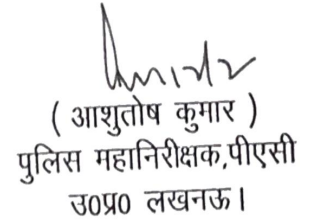 ( आशुतोष कुमार )
पुलिस महानिरीक्षक,पीएसी
उ0प्र0 लखनऊ।